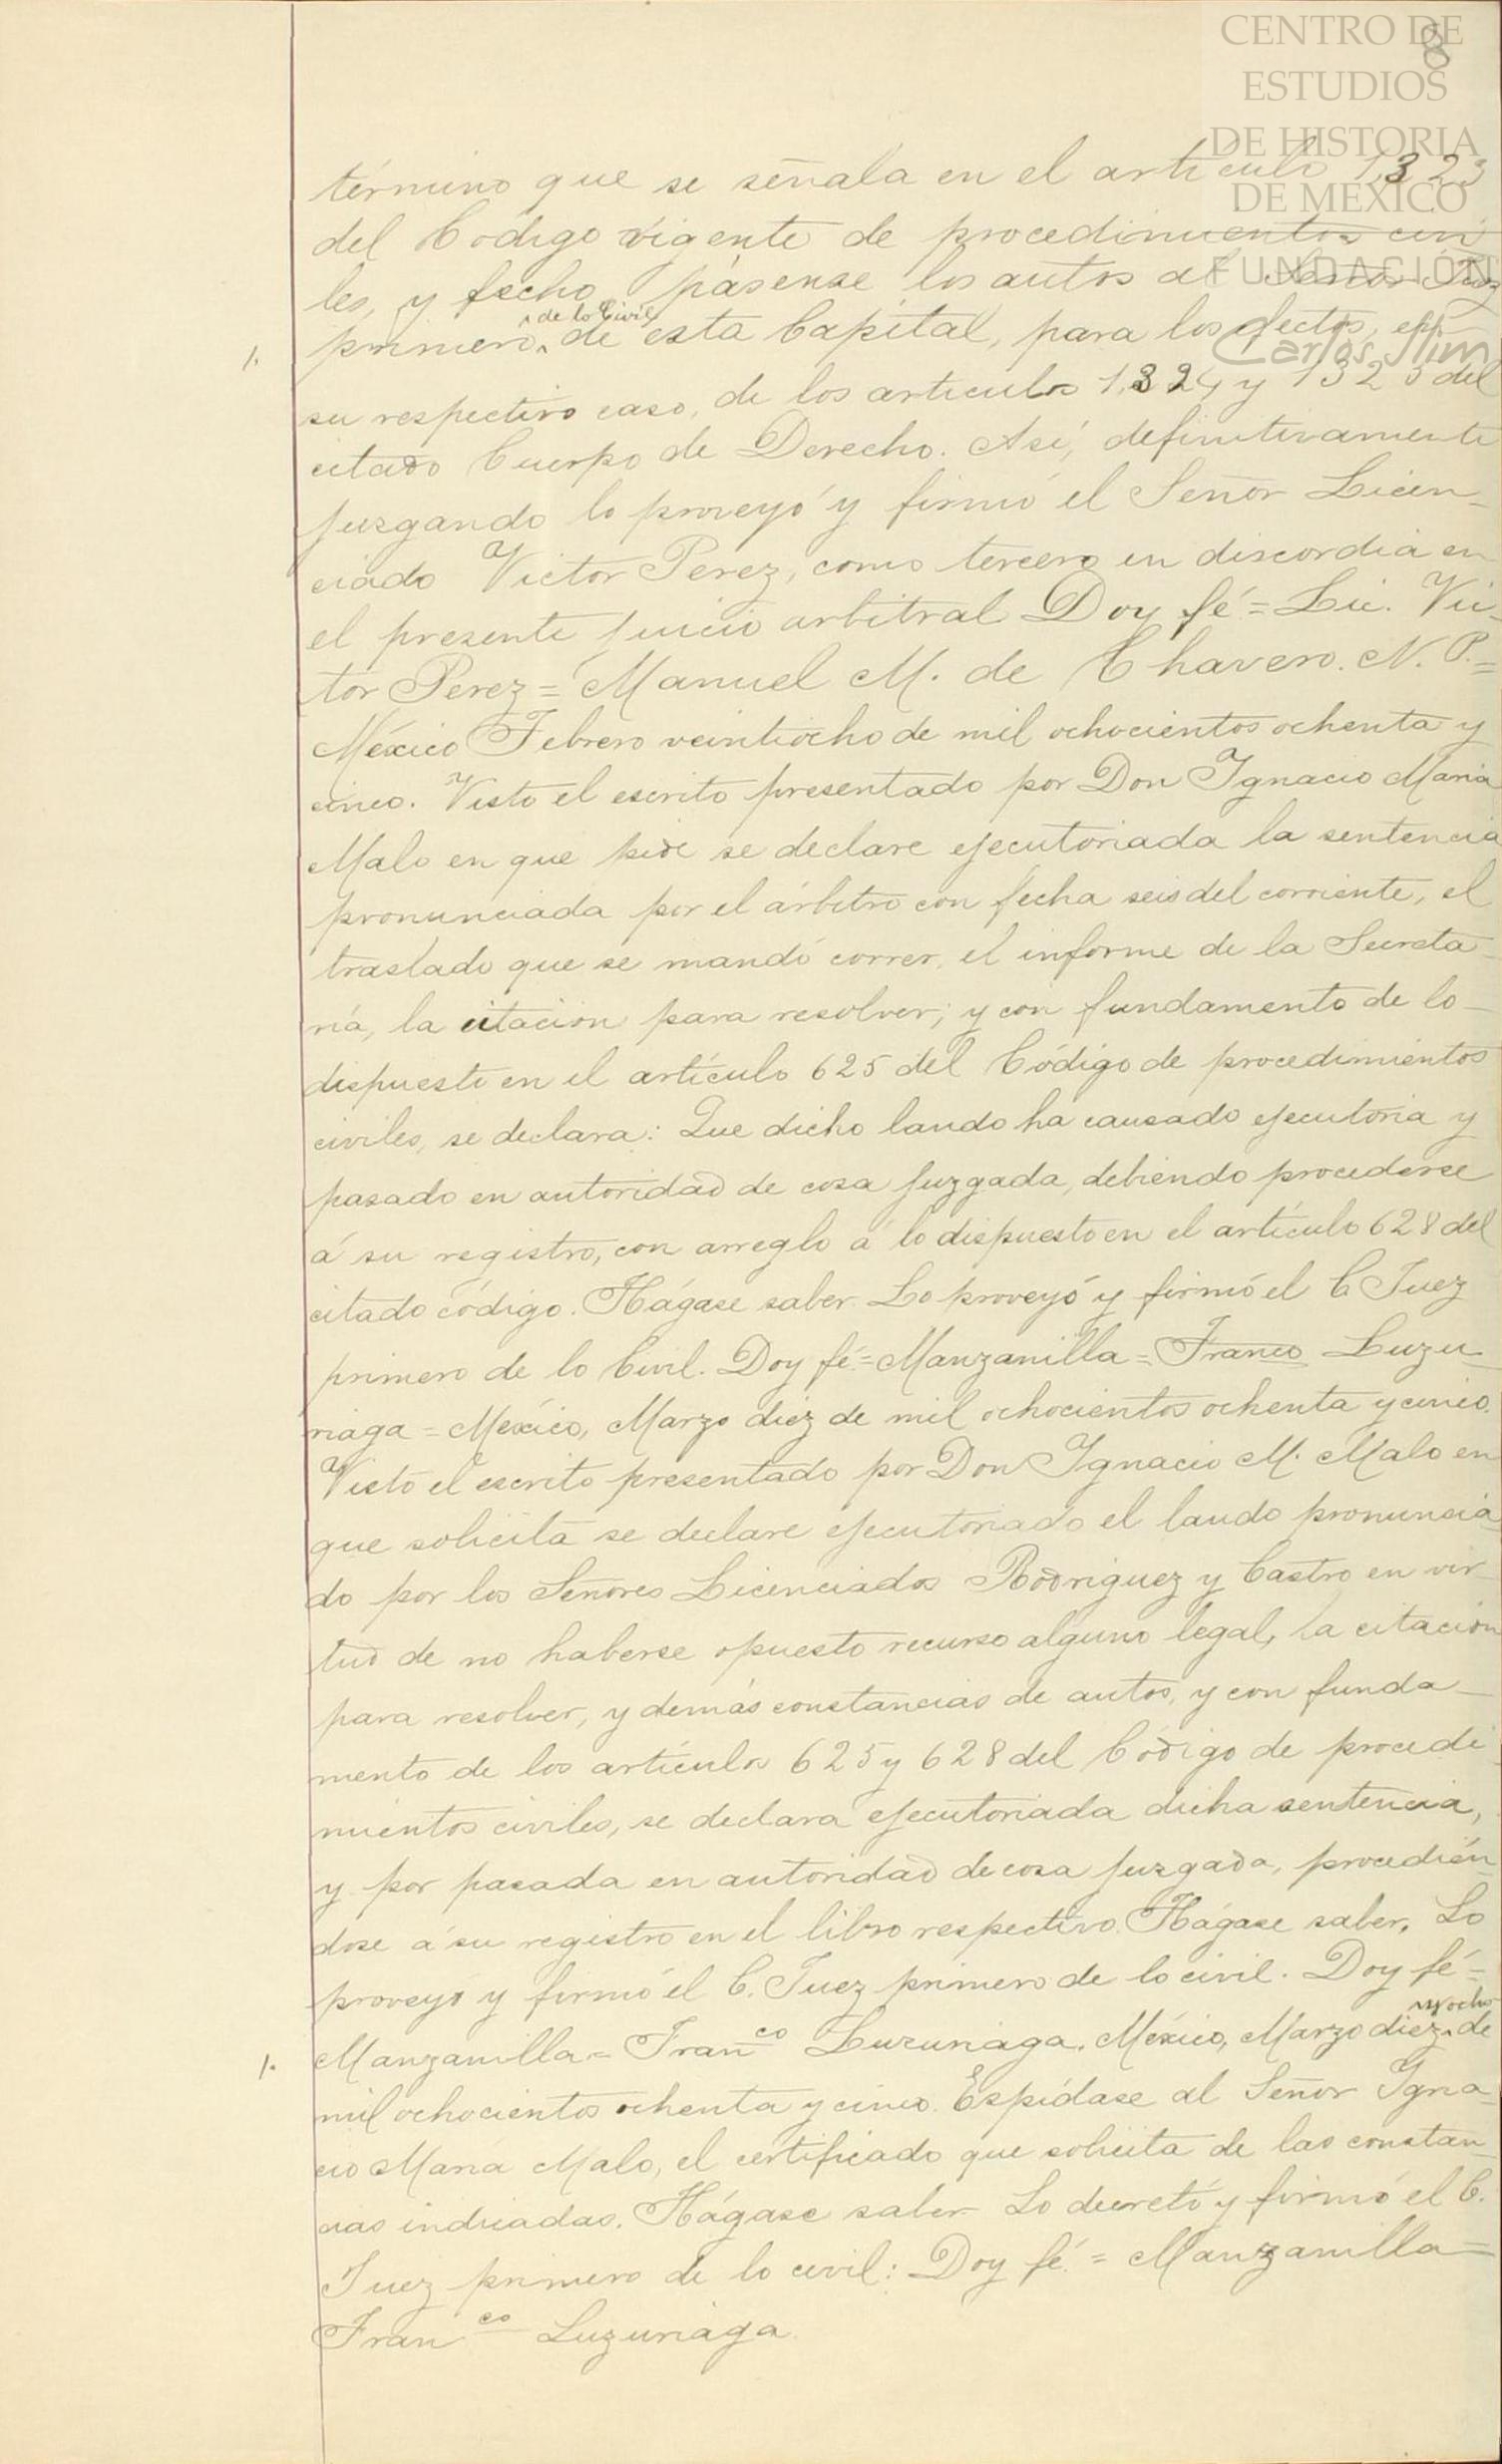 CENTRO DE
ESTUDIOS
DE HISTORIA
DE MÉXICO
FUNDACIÓN
Carlos Slim
8
término que se señala en el artículo 1,323
del Código vigente de procedimientos civi
les, y fecho pásense los autos al Señor Juez
de lo Civil
1. primero, de esta Capital, para los efectos, en
su respectivo caso, de los articulos 1,324 y 1325 del
citado Cuerpo de Derecho. Así, definitivamente
juzgando lo proveyó y firmó el Señor Licen-
ciado Victor Perez, como tercero en discordia en
el presente juicio arbitral Doy fé = Lic. Vic-
tor Perez = Manuel M. de Chavero. N. P. =
México Febrero veintiocho de mil ochocientos ochenta y
cinco. Visto el escrito presentado por Don Ignacio Maria
Malo en que pide se declare ejecutoriada la sentencia
pronunciada por el árbitro con fecha seis del corriente, el
traslado que se mandó correr, el informe de la Secreta-
ría, la citacion para resolver; y con fundamento de lo-
dispuesto en el artículo 625 del Código de procedimientos
civiles, se declara: Que dicho laudo ha causado ejecutoria y
pasado en autoridad de cosa juzgada, debiendo procederse
á su registro, con arreglo á lo dispuesto en el artículo 628 del
citado código. Hágase saber. Lo proveyó y firmó el C Juez
primero de lo Civil. Doy fé = Manzanilla = Franco Luzu-
riaga = México, Marzo diez de mil ochocientos ochenta y cinco.
Visto el escrito presentado por Don Ignacio M. Malo en
que solicita se declare ejecutoriado el laudo pronuncia-
do por los Señores Licenciados Rodriguez y Castro en vir-
tud de no haberse opuesto recurso alguno legal, la citacion
para resolver, y demás constancias de autos, y con funda-
mento de los artículos 625 y 628 del Código de procedi-
mientos civiles, se declara ejecutoriada dicha sentencia,
y por pasada en autoridad de cosa juzgada, procedién-
dose á su registro en el libro respectivo. Hágase saber. Lo
proveyó y firmó el C. Juez primero de lo civil. Doy fé =
y ocho
1. Manzanilla = Fran co Luzuriaga. México, Marzo diez, de
mil ochocientos ochenta y cinco. Espídase al Señor Igna-
cio Maria Malo, el certificado que solicita de las constan-
cias indicadas. Hágase saber. Lo decretó y firmó el C.
Juez primero de lo civil: Doy fé = Manzanilla =
Fran co Luzuriaga.